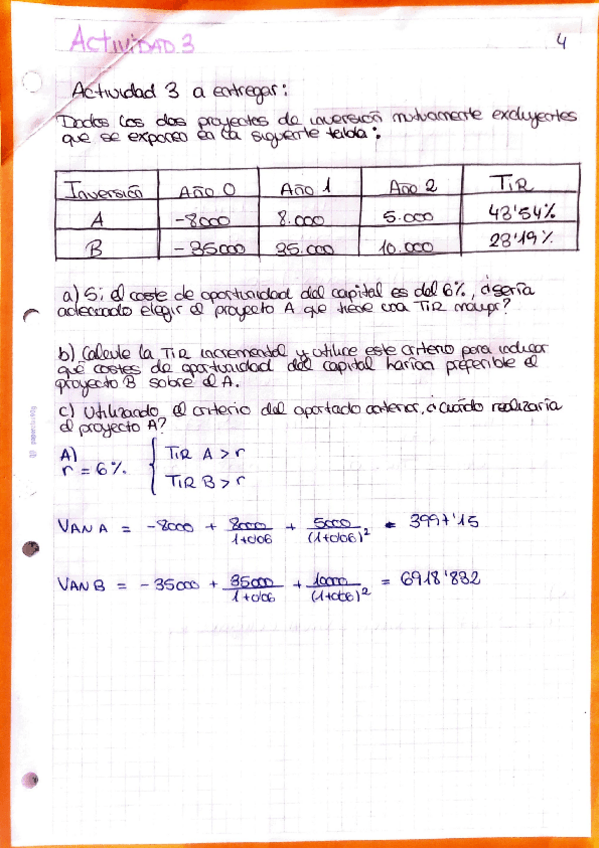 ACTIVIDAD 3
4
Actividad 3 a entregar:
Dados los dos proyectos de inversión mutuamente excluyentes
que se exponen en la siguiente tabla:
Inversión Año 0 Año 1 Año 2 TiR
A -8000 8.000 5.000 43'54%
B -35000 35.000 10.000 23'19%
a) Si el coste de oportunidad del capital es del 6%, ¿sería
adecuado elegir el proyecto A que tiene una TiR mayor?
b) Calcule la TiR incremental y utilice este criterio para indicar
qué costes de oportunidad del capital harían preferible el
proyecto B sobre el A.
c) Utilizando el criterio del apartado anterior, ¿cuándo realizaría
el proyecto A?
A)
r = 6%. { TiR A > r
TiR B > r
VAN A = -8000 + 8000/(1+0'06) + 5000/(1+0'06)² = 3997'15
VAN B = -35000 + 35000/(1+0'06) + 10000/(1+0'06)² = 6918'832